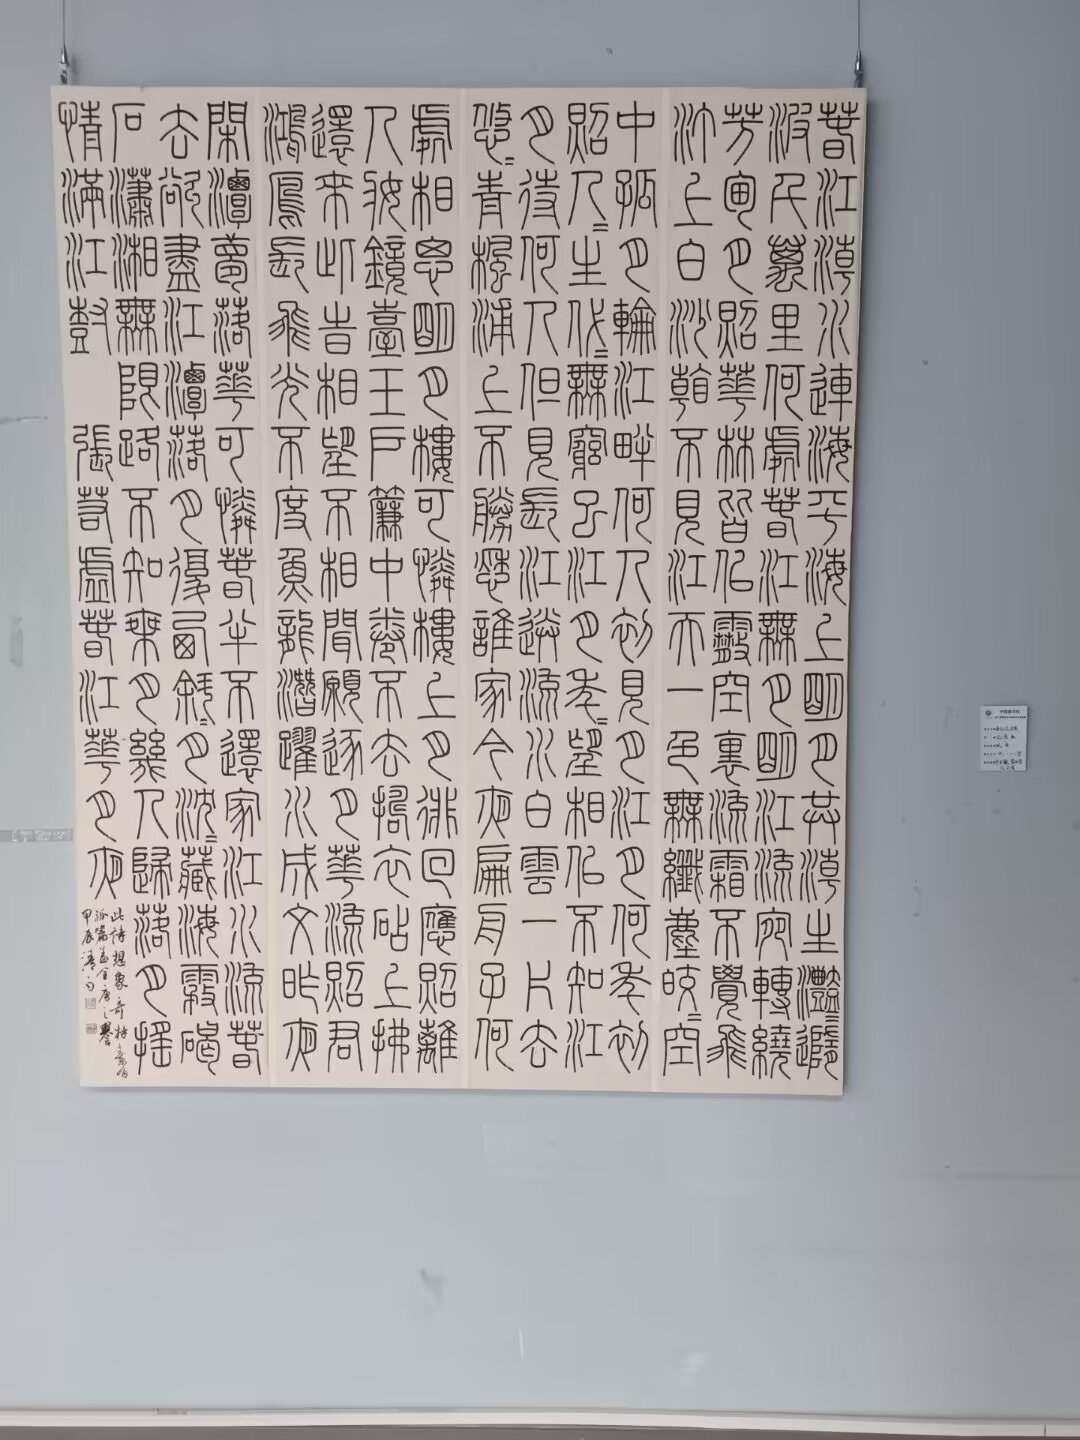 春江潮水連海平海上明月共潮生灩〻隨
波千萬里何處春江無月明江流宛轉繞
芳甸月照華林皆似霰空裏流霜不覺飛
汀上白沙看不見江天一色無纖塵皎〻空
中孤月輪江畔何人初見月江月何年初
照人〻生代〻無窮已江月年〻望相似不知江
月待何人但見長江送流水白雲一片去
悠〻青楓浦上不勝愁誰家今夜扁舟子何
處相思明月樓可憐樓上月徘徊應照離
人妝鏡臺玉戶簾中卷不去擣衣砧上拂
還來此時相望不相聞願逐月華流照君
鴻雁長飛光不度魚龍潛躍水成文昨夜
閑潭夢落華可憐春半不還家江水流春
去欲盡江潭落月復西斜〻月沈〻藏海霧碣
石瀟湘無限路不知乘月幾人歸落月搖
情滿江樹
張若虛春江華月夜
此詩想象奇特素有
孤篇蓋全唐之譽
甲辰